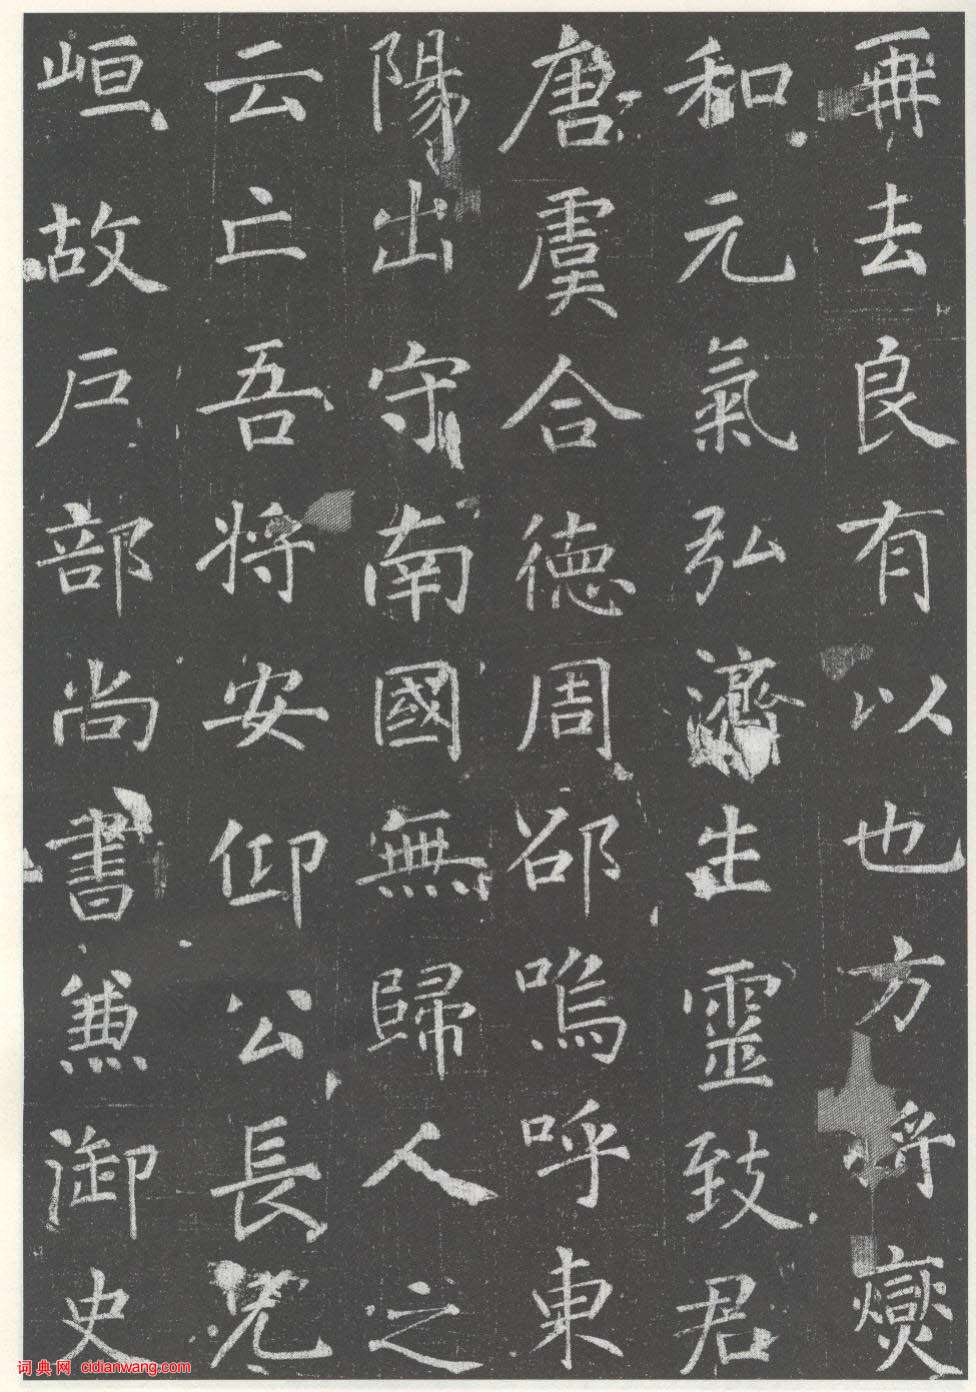 再去良有以也方將燮
和元氣弘濟生靈致君
唐虞合德周邵嗚呼東
陽出守南國無歸人之
云亡吾將安仰公長兄
峘故戶部尚書兼御史
词典网 cidianwang.com